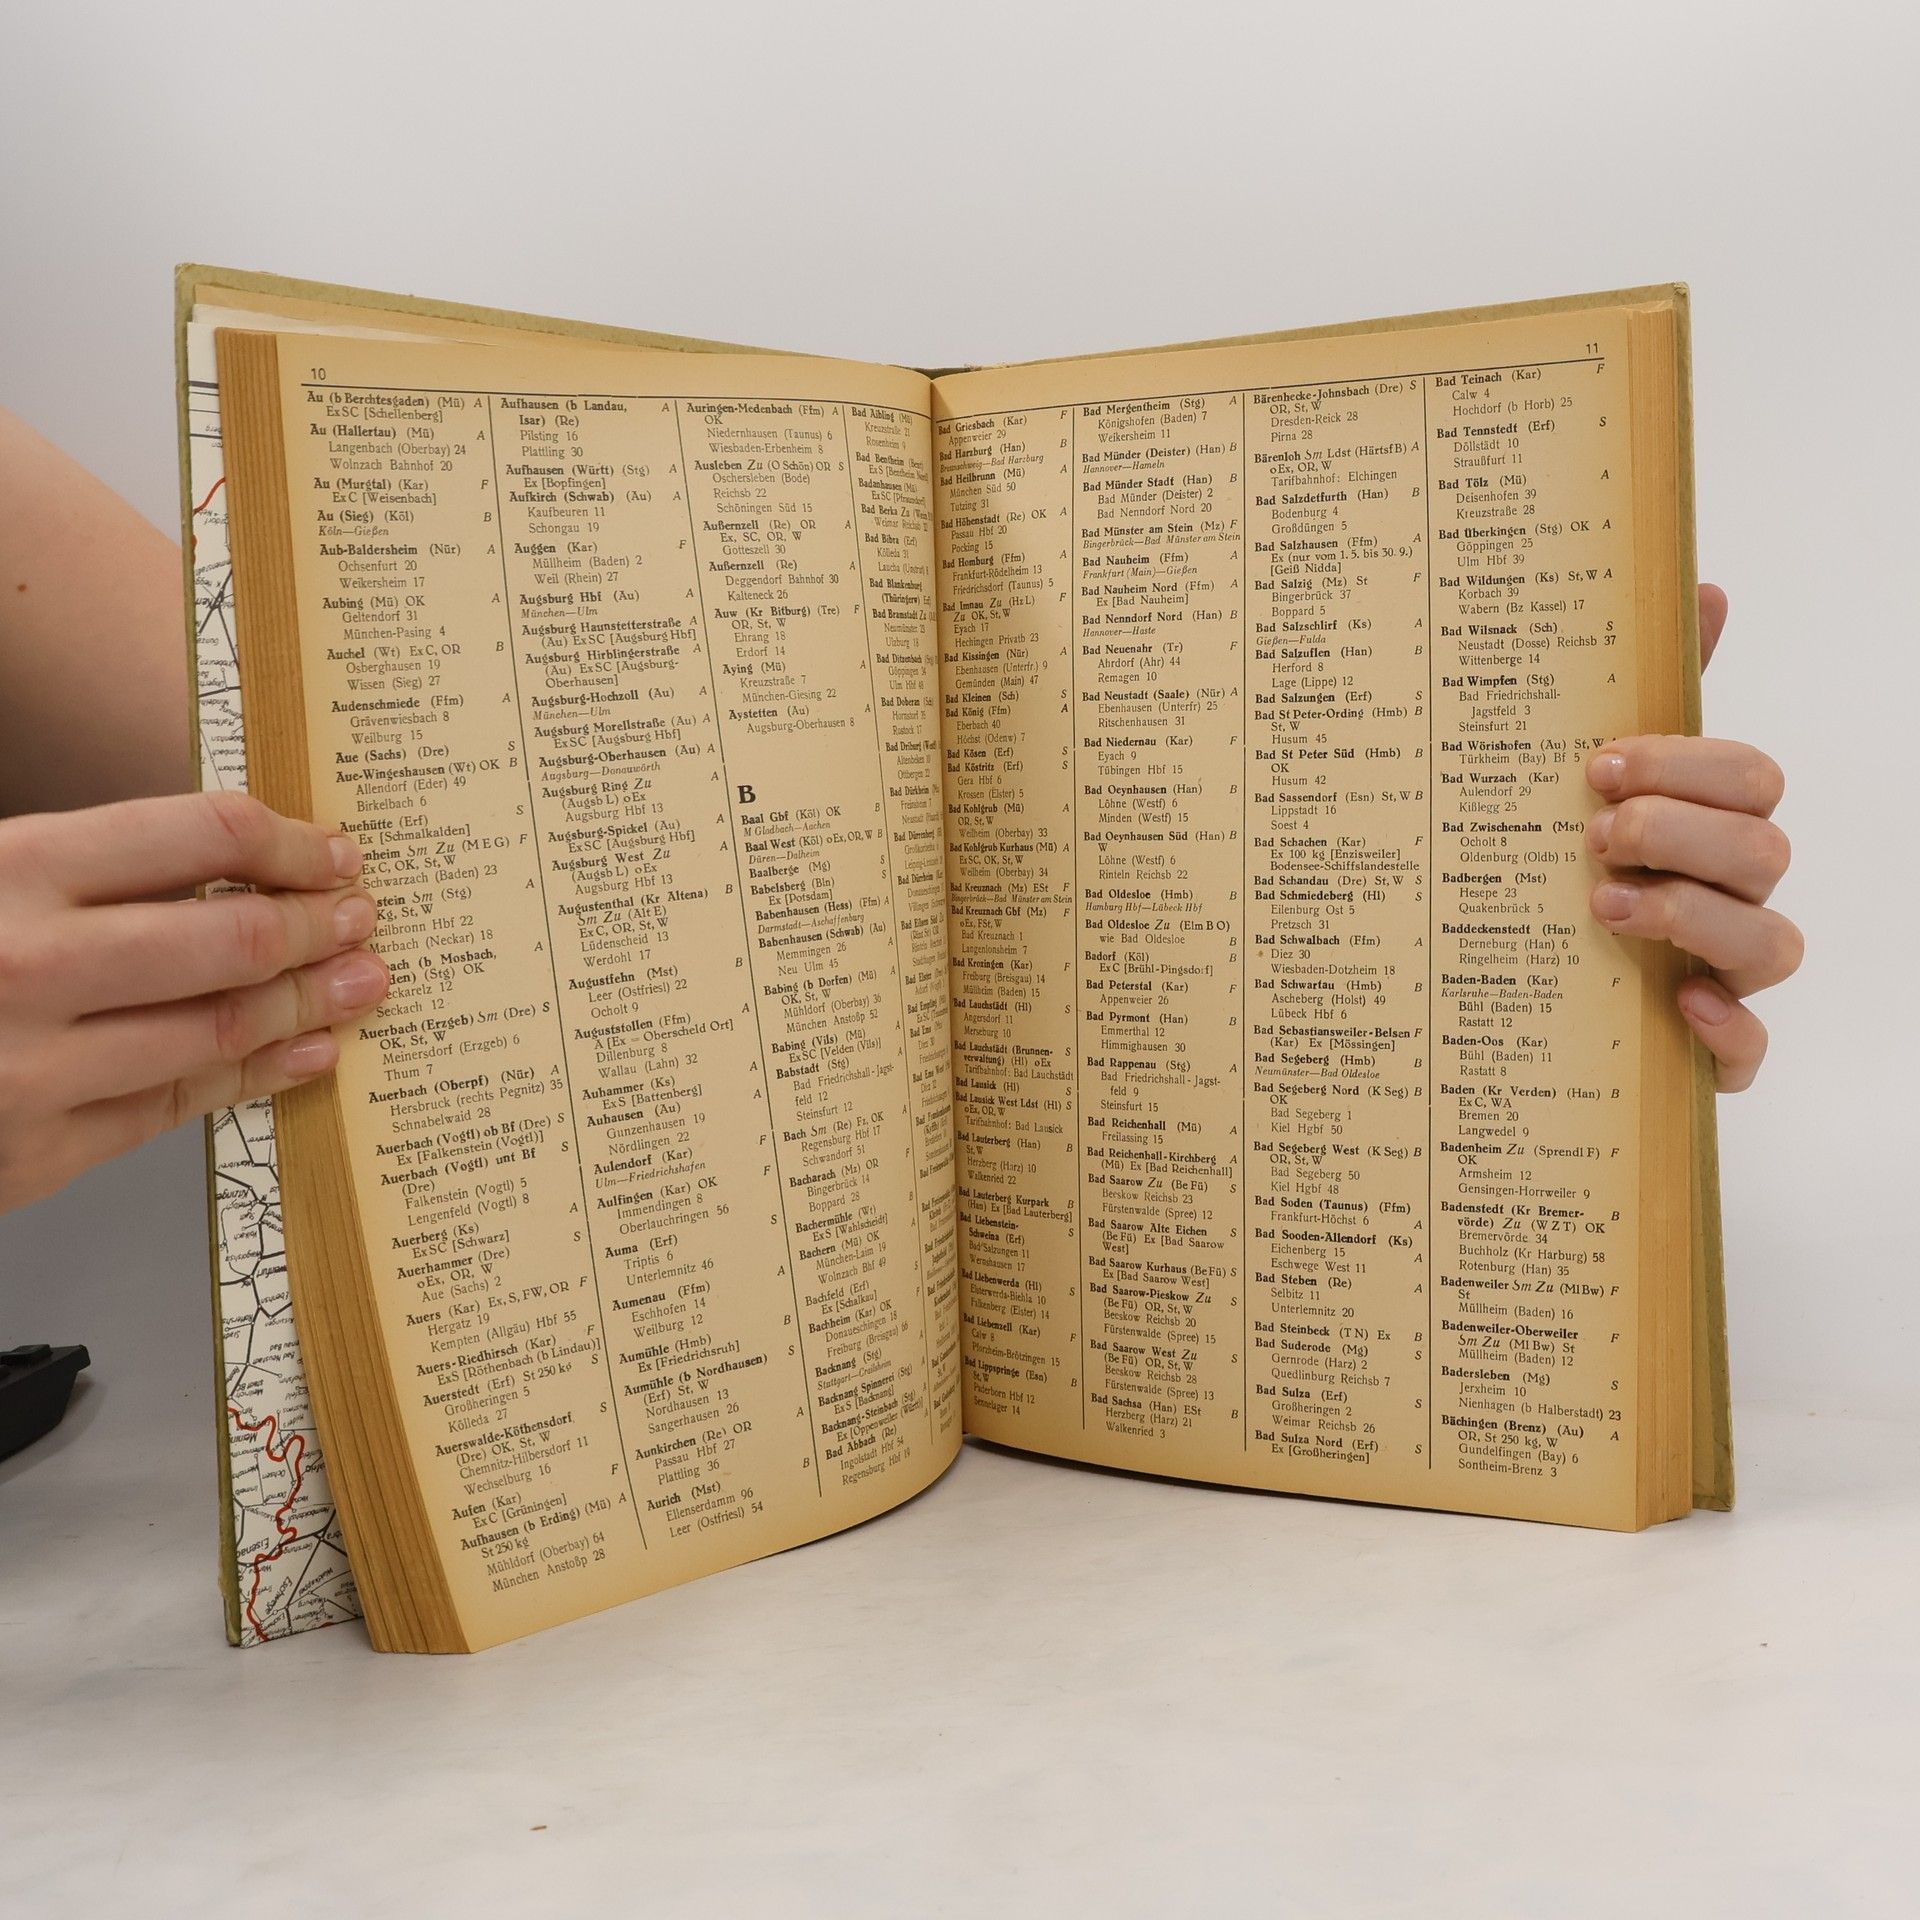 10
Au (b Berchtesgaden) (Mü) A
ExSC [Schellenberg]
Au (Hallertau) (Mü) A
Langenbach (Oberbay) 24
Wolnzach Bahnhof 20
Au (Murgtal) (Kar) F
ExC [Weisenbach]
Au (Sieg) (Köl) B
Köln—Gießen
Aub-Baldersheim (Nür) A
Ochsenfurt 20
Weikersheim 17
Aubing (Mü) OK A
Geltendorf 31
München-Pasing 4
Auchel (Wt) ExC, OR B
Osberghausen 19
Wissen (Sieg) 27
Audenschmiede (Ffm) A
Grävenwiesbach 8
Weilburg 15
Aue (Sachs) (Dre) S
Aue-Wingeshausen (Wt) OK B
Allendorf (Eder) 49
Birkelbach 6
Auehütte (Erf) S
Ex [Schmalkalden]
nheim Sm Zu (MEG) F
ExC, OK, St, W
Schwarzach (Baden) 23
stein Sm (Stg) A
Kg, St, W
Heilbronn Hbf 22
Marbach (Neckar) 18
bach (b Mosbach, A
den) (Stg) OK
eckarelz 12
Seckach 12
Auerbach (Erzgeb) Sm (Dre) S
OK, St, W
Meinersdorf (Erzgeb) 6
Thum 7
Auerbach (Oberpf) (Nür) A
Hersbruck (rechts Pegnitz) 35
Schnabelwaid 28
Auerbach (Vogtl) ob Bf (Dre) S
Ex [Falkenstein (Vogtl)]
Auerbach (Vogtl) unt Bf S
(Dre)
Falkenstein (Vogtl) 5
Lengenfeld (Vogtl) 8
Auerberg (Ks) A
ExSC [Schwarz]
Auerhammer (Dre) S
oEx, OR, W
Aue (Sachs) 2
Auers (Kar) Ex, S, FW, OR F
Hergatz 19
Kempten (Allgäu) Hbf 55
Auers-Riedhirsch (Kar) F
ExS [Röthenbach (b Lindau)]
Auerstedt (Erf) St 250 kg S
Großheringen 5
Kölleda 27
Auerswalde-Köthensdorf S
(Dre) OK, St, W
Chemnitz-Hilbersdorf 11
Wechselburg 16
Aufen (Kar) F
ExC [Grüningen]
Aufhausen (b Erding) (Mü) A
St 250 kg
Mühldorf (Oberbay) 64
München Anstoßp 28
Aufhausen (b Landau, A
Isar) (Re)
Pilsting 16
Plattling 30
Aufhausen (Württ) (Stg) A
Ex [Bopfingen]
Aufkirch (Schwab) (Au) A
Kaufbeuren 11
Schongau 19
Auggen (Kar) F
Müllheim (Baden) 2
Weil (Rhein) 27
Augsburg Hbf (Au) A
München—Ulm
Augsburg Haunstetterstraße A
(Au) ExSC [Augsburg Hbf]
Augsburg Hirblingerstraße A
(Au) ExSC [Augsburg-
Oberhausen]
Augsburg-Hochzoll (Au) A
München—Ulm
Augsburg Morellstraße (Au) A
ExSC [Augsburg Hbf]
Augsburg-Oberhausen (Au) A
Augsburg—Donauwörth
Augsburg Ring Zu A
(Augsb L) oEx
Augsburg Hbf 13
Augsburg-Spickel (Au) A
ExSC [Augsburg Hbf]
Augsburg West Zu A
(Augsb L) oEx
Augsburg Hbf 13
Augustenthal (Kr Altena) B
Sm Zu (Alt E)
ExC, OR, St, W
Lüdenscheid 13
Werdohl 17
Augustfehn (Mst) B
Leer (Ostfriesl) 22
Ocholt 9
Auguststollen (Ffm)
A [Ex = Oberscheld Ort]
Dillenburg 8
Wallau (Lahn) 32
Auhammer (Ks) A
ExS [Battenberg]
Auhausen (Au) A
Gunzenhausen 19
Nördlingen 22
Aulendorf (Kar) F
Ulm—Friedrichshafen
Aulfingen (Kar) OK F
Immendingen 8
Oberlauchringen 56
Auma (Erf) S
Triptis 6
Unterlemnitz 46
Aumenau (Ffm) A
Eschhofen 14
Weilburg 12
Aumühle (Hmb) B
Ex [Friedrichsruh]
Aumühle (b Nordhausen) S
(Erf) St, W
Nordhausen 13
Sangerhausen 26
Aunkirchen (Re) OR A
Passau Hbf 27
Plattling 36
Aurich (Mst) B
Ellenserdamm 96
Leer (Ostfriesl) 54
Auringen-Medenbach (Ffm) A
OK
Niedernhausen (Taunus) 6
Wiesbaden-Erbenheim 8
Ausleben Zu (O Schön) OR S
Oschersleben (Bode)
Reichsb 22
Schöningen Süd 15
Außernzell (Re) OR A
Ex, SC, OR, W
Gotteszell 30
Außernzell (Re) A
Deggendorf Bahnhof 30
Kalteneck 26
Auw (Kr Bitburg) (Tre) F
OR, St, W
Ehrang 18
Erdorf 14
Aying (Mü) A
Kreuzstraße 7
München-Giesing 22
Aystetten (Au) A
Augsburg-Oberhausen 8
B
Baal Gbf (Köl) OK B
M Gladbach—Aachen
Baal West (Köl) oEx, OR, W B
Düren—Dalheim
Baalberge (Mg) S
Babelsberg (Bln) S
Ex [Potsdam]
Babenhausen (Hess) (Ffm) A
Darmstadt—Aschaffenburg
Babenhausen (Schwab) (Au)
Memmingen 26
Neu Ulm 45
Babing (b Dorfen) (Mü) A
OK, St, W
Mühldorf (Oberbay) 36
München Anstoßp 52
Babing (Vils) (Mü) A
ExSC [Velden (Vils)]
Babstadt (Stg)
Bad Friedrichshall-Jagst-
feld 12
Steinsfurt 12
Bach Sm (Re) Fz, OK A
Regensburg Hbf 17
Schwandorf 51
Bacharach (Mz) OR F
Bingerbrück 14
Boppard 28
Bachermühle (Wt) B
ExS [Wahlscheidt]
Bachern (Mü) OK A
München-Laim 19
Wolnzach Bhf 49
Bachfeld (Erf) S
Ex [Schalkau]
Bachheim (Kar) OK
Donaueschingen 18
Freiburg (Breisgau) 66
Backnang (Stg)
Stuttgart—Crailsheim
Backnang Spinnerei (Stg)
ExS [Backnang]
Backnang-Steinbach (Stg)
Ex [Oppenweiler (Württ)]
Bad Abbach (Re)
Ingolstadt Hbf 54
Regensburg Hbf 19
Bad Aibling (Mü)
Kreuzstraße 21
Rosenheim 9
Bad Bentheim
Badanhausen (Mü)
Bad Berka Zu
Bad Bibra (Erf)
Kölleda 31
Laucha (Unstrut)
Bad Blankenburg
(Thüringerw) Erf
Bad Bramstedt Zu
Neumünster
Ulzburg 18
Bad Ditzenbach
Göppingen
Ulm Hbf
Bad Doberan
Rostock 17
Bad Driburg
Altenbeken
Ottbergen 22
Bad Dürkheim
Freinsheim 7
Bad Dürrenberg
Bad Dürrheim
11
Bad Griesbach (Kar) F
Appenweier 29
Bad Harzburg (Han) B
Braunschweig—Bad Harzburg
Bad Heilbrunn (Mü) A
München Süd 50
Tutzing 31
Bad Höhenstadt (Re) OK A
Passau Hbf 20
Pocking 15
Bad Homburg (Ffm) A
Frankfurt-Rödelheim 13
Friedrichsdorf (Taunus) 5
Bad Imnau Zu (HzL) F
Zu OK, St, W
Eyach 17
Hechingen Privatb 23
Bad Kissingen (Nür) A
Ebenhausen (Unterfr.) 9
Gemünden (Main) 47
Bad Kleinen (Sch) S
Bad König (Ffm) A
Eberbach 40
Höchst (Odenw) 7
Bad Kösen (Erf) S
Bad Köstritz (Erf) S
Gera Hbf 6
Krossen (Elster) 5
Bad Kohlgrub (Mü) A
OR, St, W
Weilheim (Oberbay) 33
Bad Kohlgrub Kurhaus (Mü) A
ExSC, OK, St, W
Weilheim (Oberbay) 34
Bad Kreuznach (Mz) ESt F
Bingerbrück—Bad Münster am Stein
Bad Kreuznach Gbf (Mz) F
oEx, FSt, W
Bad Kreuznach 1
Langenlonsheim 7
Bad Krozingen (Kar) F
Freiburg (Breisgau) 14
Müllheim (Baden) 15
Bad Lauchstädt (Hl) S
Angersdorf 11
Merseburg 10
Bad Lauchstädt (Brunnen- S
verwaltung) (Hl) oEx
Tarifbahnhof: Bad Lauchstädt
Bad Lausick (Hl) S
Bad Lausick West Ldst (Hl) S
oEx, OR, W
Tarifbahnhof: Bad Lausick
Bad Lauterberg (Han) B
St, W
Herzberg (Harz) 10
Walkenried 22
Bad Lauterberg Kurpark B
(Han) Ex [Bad Lauterberg]
Bad Liebenstein- S
Schweina (Erf)
Bad Salzungen 11
Wernshausen 17
Bad Liebenwerda (Hl) S
Elsterwerda-Biehla 10
Falkenberg (Elster) 14
Bad Liebenzell (Kar) F
Calw 8
Pforzheim-Brötzingen 15
Bad Lippspringe (Esn) B
St, W
Paderborn Hbf 12
Sennelager 14
Bad Mergentheim (Stg) A
Königshofen (Baden) 7
Weikersheim 11
Bad Münder (Deister) (Han) B
Hannover—Hameln
Bad Münder Stadt (Han) B
Bad Münder (Deister) 2
Bad Nenndorf Nord 20
Bad Münster am Stein (Mz) F
Bingerbrück—Bad Münster am Stein
Bad Nauheim (Ffm) A
Frankfurt (Main)—Gießen
Bad Nauheim Nord (Ffm) A
Ex [Bad Nauheim]
Bad Nenndorf Nord (Han) B
Hannover—Haste
Bad Neuenahr (Tr) F
Ahrdorf (Ahr) 44
Remagen 10
Bad Neustadt (Saale) (Nür) A
Ebenhausen (Unterfr) 25
Ritschenhausen 31
Bad Niedernau (Kar) F
Eyach 9
Tübingen Hbf 15
Bad Oeynhausen (Han) B
Löhne (Westf) 6
Minden (Westf) 15
Bad Oeynhausen Süd (Han) B
W
Löhne (Westf) 6
Rinteln Reichsb 22
Bad Oldesloe (Hmb) B
Hamburg Hbf—Lübeck Hbf
Bad Oldesloe Zu (Elm B O)
wie Bad Oldesloe B
Badorf (Köl) B
ExC [Brühl-Pingsdorf]
Bad Peterstal (Kar) F
Appenweier 26
Bad Pyrmont (Han) B
Emmerthal 12
Himmighausen 30
Bad Rappenau (Stg) A
Bad Friedrichshall - Jagst-
feld 9
Steinsfurt 15
Bad Reichenhall (Mü) A
Freilassing 15
Bad Reichenhall-Kirchberg A
(Mü) Ex [Bad Reichenhall]
Bad Saarow Zu (Be Fü) S
Beeskow Reichsb 23
Fürstenwalde (Spree) 12
Bad Saarow Alte Eichen S
(Be Fü) Ex [Bad Saarow
West]
Bad Saarow Kurhaus (Be Fü) S
Ex [Bad Saarow West]
Bad Saarow-Pieskow Zu S
(Be Fü) OR, St, W
Beeskow Reichsb 20
Fürstenwalde (Spree) 15
Bad Saarow West Zu S
(Be Fü) OR, St, W
Beeskow Reichsb 28
Fürstenwalde (Spree) 13
Bad Sachsa (Han) ESt B
Herzberg (Harz) 21
Walkenried 3
Bärenhecke-Johnsbach (Dre) S
OR, St, W
Dresden-Reick 28
Pirna 28
Bärenloh Sm Ldst (HärtsfB) A
oEx, OR, W
Tarifbahnhof: Elchingen
Bad Salzdetfurth (Han) B
Bodenburg 4
Großdüngen 5
Bad Salzhausen (Ffm) A
Ex (nur vom 1. 5. bis 30. 9.)
[Geiß Nidda]
Bad Salzig (Mz) St F
Bingerbrück 37
Boppard 5
Bad Salzschlirf (Ks) A
Gießen—Fulda
Bad Salzuflen (Han) B
Herford 8
Lage (Lippe) 12
Bad Salzungen (Erf) S
Bad St Peter-Ording (Hmb) B
St, W
Husum 45
Bad St Peter Süd (Hmb) B
OK
Husum 42
Bad Sassendorf (Esn) St, W B
Lippstadt 16
Soest 4
Bad Schachen (Kar) F
Ex 100 kg [Enzisweiler]
Bodensee-Schiffslandestelle
Bad Schandau (Dre) St, W S
Bad Schmiedeberg (Hl) S
Eilenburg Ost 5
Pretzsch 31
Bad Schwalbach (Ffm) A
Diez 30
Wiesbaden-Dotzheim 18
Bad Schwartau (Hmb) B
Ascheberg (Holst) 49
Lübeck Hbf 6
Bad Sebastiansweiler-Belsen F
(Kar) Ex [Mössingen]
Bad Segeberg (Hmb) B
Neumünster—Bad Oldesloe
Bad Segeberg Nord (K Seg) B
OK
Bad Segeberg 1
Kiel Hgbf 50
Bad Segeberg West (K Seg) B
OR, St, W
Bad Segeberg 50
Kiel Hgbf 48
Bad Soden (Taunus) (Ffm)
Frankfurt-Höchst 6 A
Bad Sooden-Allendorf (Ks)
Eichenberg 15 A
Eschwege West 11
Bad Steben (Re) A
Selbitz 11
Unterlemnitz 20
Bad Steinbeck (T N) Ex B
Bad Suderode (Mg) S
Gernrode (Harz) 2
Quedlinburg Reichsb 7
Bad Sulza (Erf) S
Großheringen 2
Weimar Reichsb 26
Bad Sulza Nord (Erf) S
Ex [Großheringen]
Bad Teinach (Kar) F
Calw 4
Hochdorf (b Horb) 25
Bad Tennstedt (Erf) S
Döllstädt 10
Straußfurt 11
Bad Tölz (Mü) A
Deisenhofen 39
Kreuzstraße 28
Bad Überkingen (Stg) OK A
Göppingen 25
Ulm Hbf 39
Bad Wildungen (Ks) St, W A
Korbach 39
Wabern (Bz Kassel) 17
Bad Wilsnack (Sch) S
Neustadt (Dosse) Reichsb 37
Wittenberge 14
Bad Wimpfen (Stg) A
Bad Friedrichshall-
Jagstfeld 3
Steinsfurt 21
Bad Wörishofen (Au) St, W
Türkheim (Bay) Bf 5
Bad Wurzach (Kar)
Aulendorf 29
Kißlegg 25
Bad Zwischenahn (Mst)
Ocholt 8
Oldenburg (Oldb) 15
Badbergen (Mst)
Hesepe 23
Quakenbrück 5
Baddeckenstedt (Han)
Derneburg (Han) 6
Ringelheim (Harz) 10
Baden-Baden (Kar) F
Karlsruhe—Baden-Baden
Bühl (Baden) 15
Rastatt 12
Baden-Oos (Kar) F
Bühl (Baden) 11
Rastatt 8
Baden (Kr Verden) (Han) B
ExC, WA
Bremen 20
Langwedel 9
Badenheim Zu (Sprendl F) F
OK
Armsheim 12
Gensingen-Horrweiler 9
Badenstedt (Kr Bremer- B
vörde) Zu (W Z T) OK
Bremervörde 34
Buchholz (Kr Harburg) 58
Rotenburg (Han) 35
Badenweiler Sm Zu (MlBw) F
St
Müllheim (Baden) 16
Badenweiler-Oberweiler F
Sm Zu (Ml Bw) St
Müllheim (Baden) 12
Badersleben (Mg) S
Jerxheim 10
Nienhagen (b Halberstadt) 23
Bächingen (Brenz) (Au) A
OR, St 250 kg, W
Gundelfingen (Bay) 6
Sontheim-Brenz 3